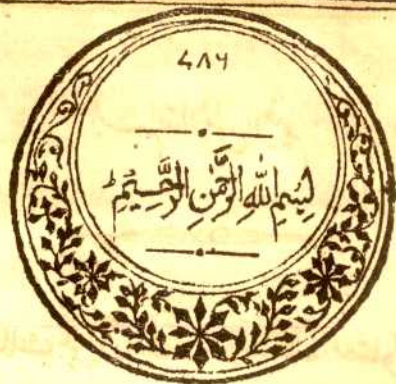 ۷۸۶
بِسْمِ اللّٰهِ الرَّحْمٰنِ الرَّحِيْمِ ط